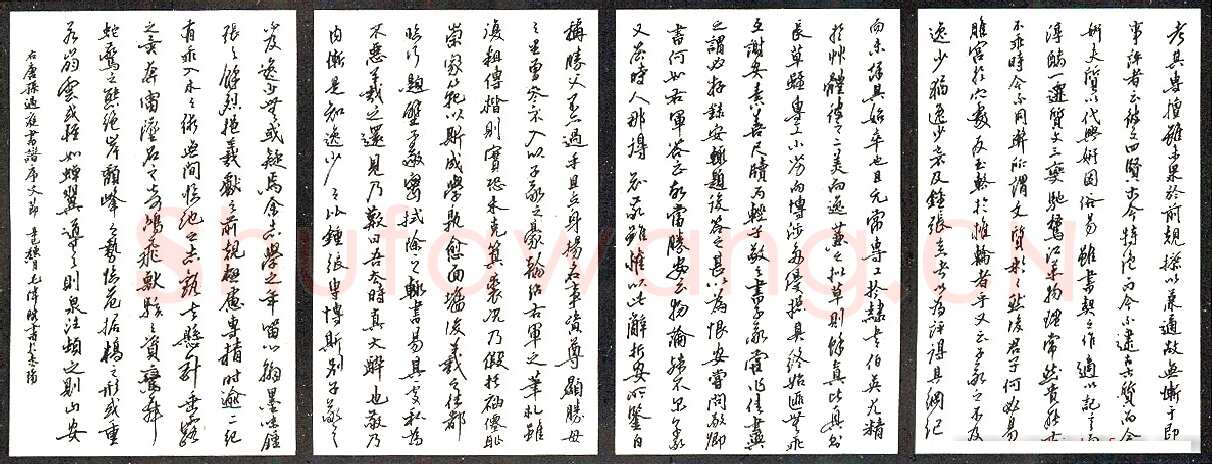 考其專擅雖未果於前規摭以兼通故無慚于即
事評者云彼之四賢古今特絕而今不逮古古質而今
妍夫質以代興妍因俗易雖書契之作適以記言而
淳醨一遷質文三變馳騖沿革物理常然貴能古
不乖時今不同弊所謂文質彬彬然後君子何必易
雕宮於穴處反玉輅於椎輪者乎又云子敬之不及
逸少猶逸少之不及鍾張意者以為評得其綱紀
而未詳其始卒也且元常專工於隸書伯英尤精
於草體彼之二美而逸少兼之擬草則餘真比真則
長草雖專工小劣而博涉多優揔其終始匪無乖
互謝安素善尺牘而輕子敬之書子敬嘗作佳書與
之謂必存錄安輒題後答之甚以為恨安嘗問敬卿
書何如右軍答云故當勝安云物論殊不爾子敬
又答時人那得知敬雖權以此辭折安所鑒自
稱勝父不亦過乎且立身揚名事資尊顯勝母
之里曾參不入以子敬之豪翰紹右軍之筆札雖
復粗傳楷則實恐未克箕裘況乃假託神僊恥
崇家範以斯成學孰愈面牆後羲之往都
臨行題壁子敬密拭除之輒書易其處私為
不惡羲之還見乃歎曰吾去時真大醉也敬乃
內慚是知逸少之比鍾張專博斯別子敬之不
及逸少無或疑焉余志學之年留心翰墨味鍾
張之餘烈挹羲獻之前規極慮專精時逾二紀
有乖入木之術無間臨池之志觀夫懸針垂露
之異奔雷墜石之奇鴻飛獸駭之資鸞舞
蛇驚之態絕岸頹峰之勢臨危據槁之形或重
若崩雲或輕如蟬翼導之則泉注頓之則山安
右唐孫過庭書譜序文節
Shufawang.CN